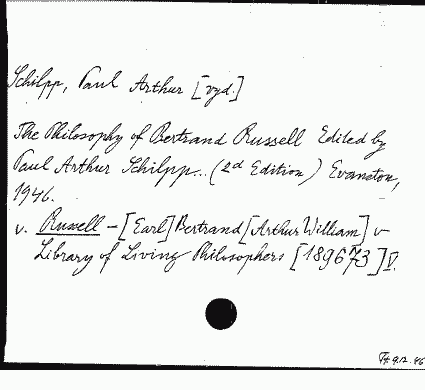 Schilpp, Paul Arthur [vyd.]
The Philosophy of Bertrand Russell Edited by
Paul Arthur Schilpp.. (2d Edition) Evanston,
1946.
v. Russell - [Earl] Bertrand [Arthur William] v
Library of Living Philosophers [189673] V.